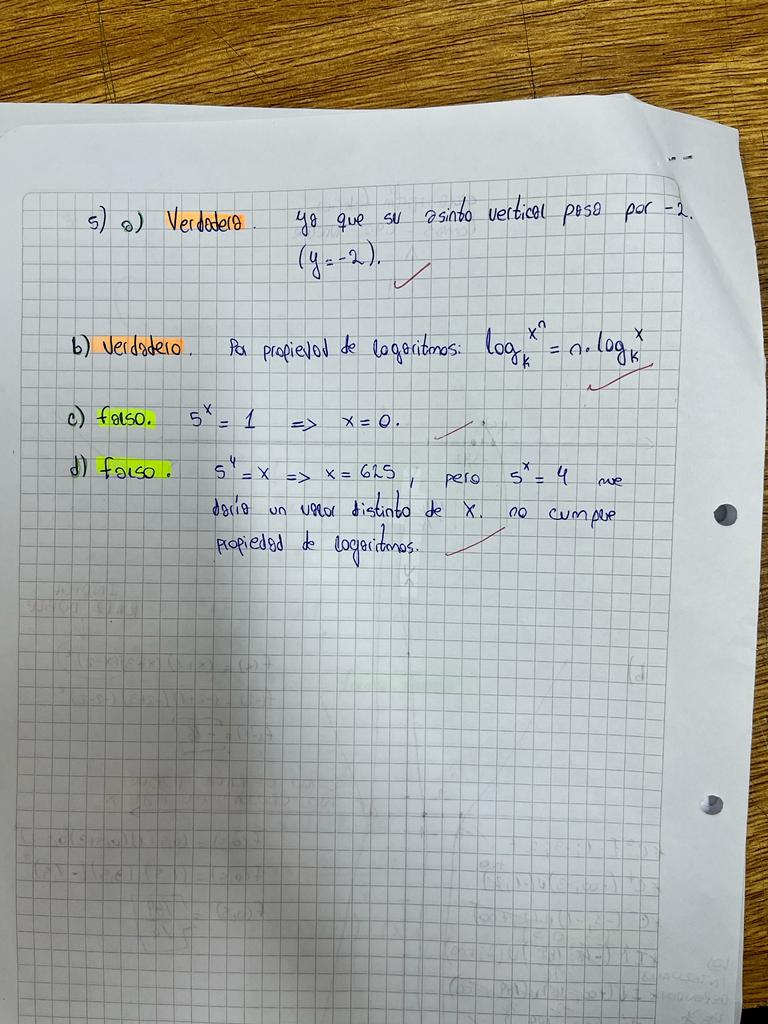 5) a) Verdadero. ya que su asinto vertical pasa por -2.
(y=-2).
b) Verdadero. Por propiedad de logaritmos: log_k^{x^n} = n. log_k^x
c) falso. 5^x = 1 => x = 0.
d) falso. 5^4 = x => x = 625, pero 5^x = 4 me
daría un valor distinto de x. no cumple
propiedad de logaritmos.